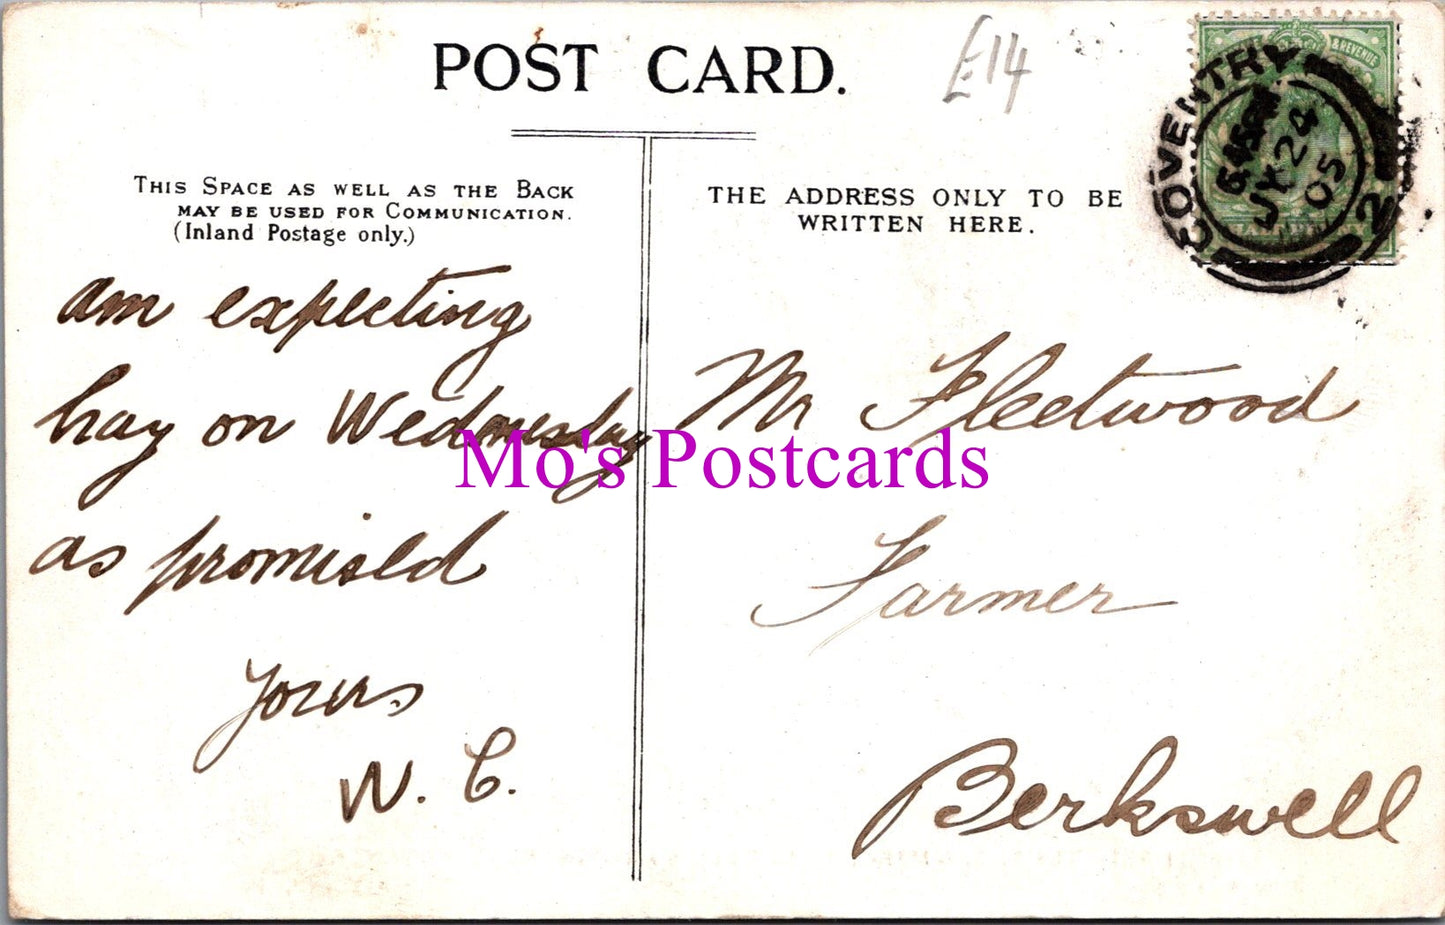 POST CARD.
£14
& REVENUE
COVENTRY
6 45 PM
JY 24
05
2
THIS SPACE AS WELL AS THE BACK
MAY BE USED FOR COMMUNICATION.
(Inland Postage only.)
THE ADDRESS ONLY TO BE
WRITTEN HERE.
am expecting
hay on Wednesday
as promised
yours
W. C.
Mr Fleetwood
Farmer
Berkswell
Mo's Postcards